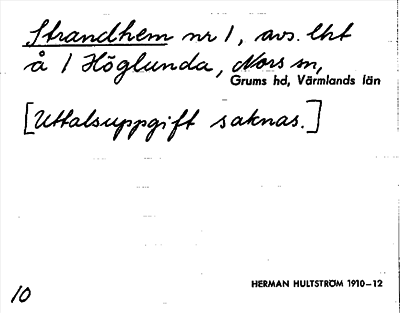 Strandhem nr 1, avs. lht
å 1 Höglunda, Nors sn,
Grums hd, Värmlands län
[Uttalsuppgift saknas.]
HERMAN HULTSTRÖM 1910–12
10